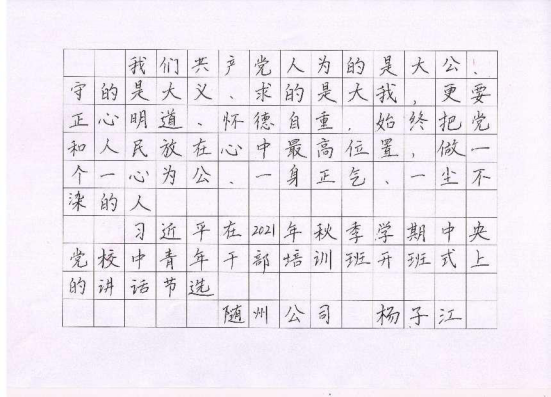 我们共产党人为的是大公、
守的是大义、求的是大我，更要
正心明道、怀德自重，始终把党
和人民放在心中最高位置，做一
个一心为公、一身正气、一尘不
染的人
习近平在2021年秋季学期中央
党校中青年干部培训班开班式上
的讲话节选
随州公司 杨子江